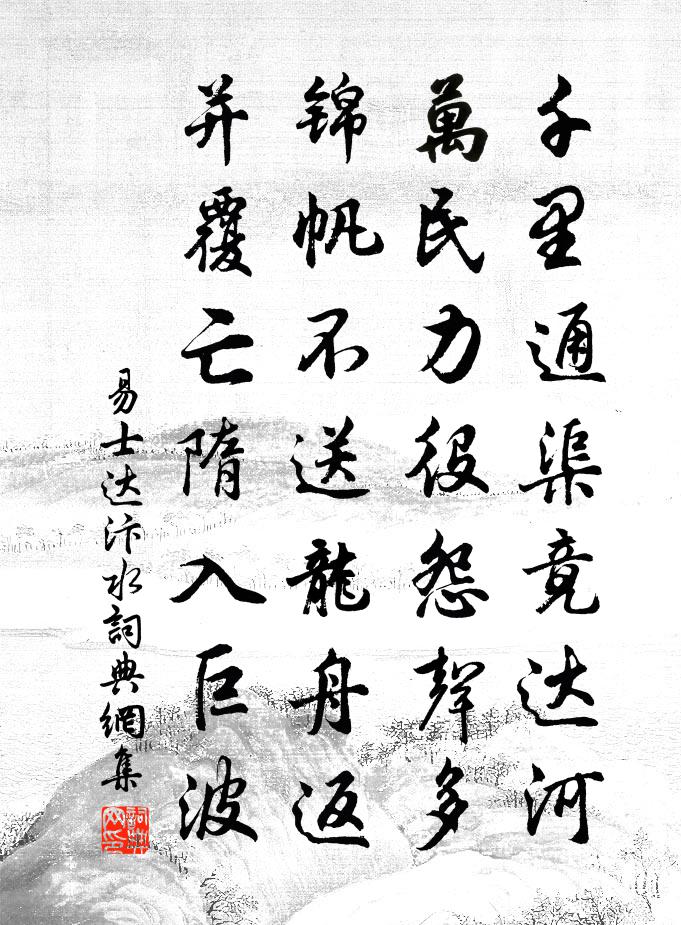 千里通渠竟达河
萬民力役怨聲多
锦帆不送龍舟返
并覆亡隋入巨波
易士达汴水詞典網集
詞典
网印